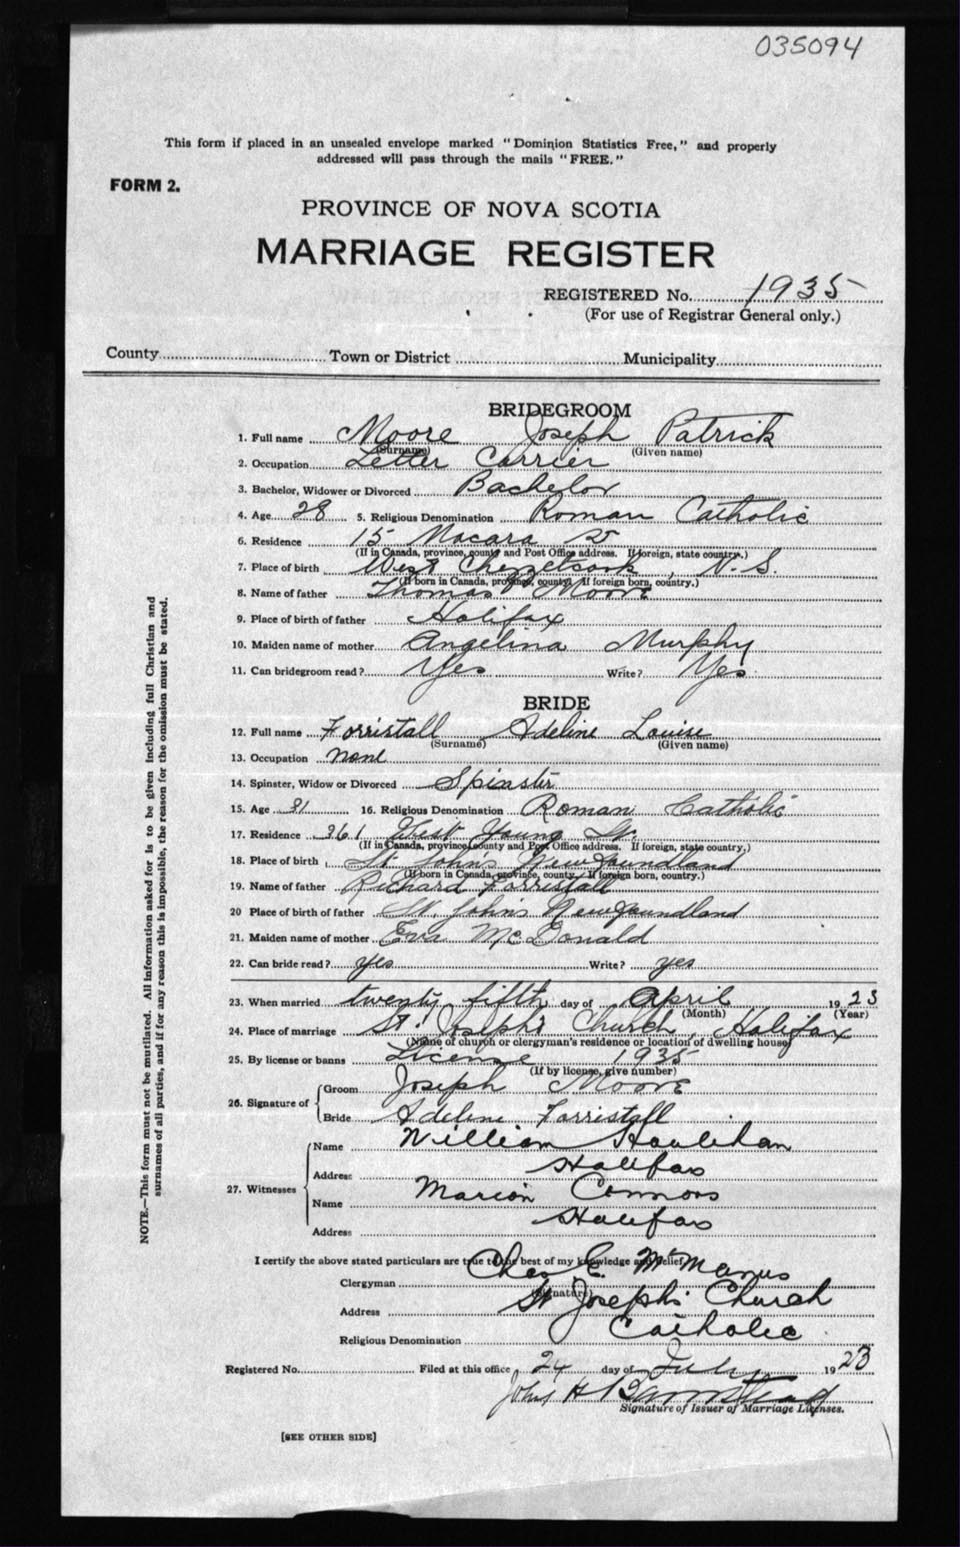 035094
This form if placed in an unsealed envelope marked "Dominion Statistics Free," and properly
addressed will pass through the mails "FREE."
FORM 2.
PROVINCE OF NOVA SCOTIA
MARRIAGE REGISTER
REGISTERED No. 1935
(For use of Registrar General only.)
County Town or District Municipality
BRIDEGROOM
1. Full name Moore Joseph Patrick
(Surname) (Given name)
2. Occupation Letter Carrier
3. Bachelor, Widower or Divorced Bachelor
4. Age 28 5. Religious Denomination Roman Catholic
6. Residence 15 Macara St
(If in Canada, province, county and Post Office address. If foreign, state country.)
7. Place of birth West Chezzetcook, N. S.
(If born in Canada, province, county. If foreign born, country.)
8. Name of father Thomas Moore
9. Place of birth of father Halifax
10. Maiden name of mother Angelina Murphy
11. Can bridegroom read? Yes Write? Yes
BRIDE
12. Full name Forristall Adeline Louise
(Surname) (Given name)
13. Occupation none
14. Spinster, Widow or Divorced Spinster
15. Age 31 16. Religious Denomination Roman Catholic
17. Residence 361 West Young St.
(If in Canada, province, county and Post Office address. If foreign, state country,)
18. Place of birth St. John's Newfoundland
(If born in Canada, province, county. If foreign born, country.)
19. Name of father Richard Forristall
20 Place of birth of father St. John's Newfoundland
21. Maiden name of mother Eva McDonald
22. Can bride read? yes Write? yes
23. When married twenty fifth day of April 1923
(Month) (Year)
24. Place of marriage St. Joseph's Church, Halifax
(Name of church or clergyman's residence or location of dwelling house)
25. By license or banns License 1935
(If by license, give number)
26. Signature of { Groom Joseph Moore
Bride Adeline Forristall
27. Witnesses { Name William Houlihan
Address Halifax
Name Marion Connors
Address Halifax
I certify the above stated particulars are true to the best of my knowledge and belief.
Clergyman Chas C. McManus
(Signature)
Address St Joseph's Church
Religious Denomination Catholic
Registered No. Filed at this office, 24 day of July 1923
John H Barnstead
Signature of Issuer of Marriage Licenses.
[SEE OTHER SIDE]
NOTE.—This form must not be mutilated. All information asked for is to be given including full Christian and
surnames of all parties, and if for any reason this is impossible, the reason for the omission must be stated.